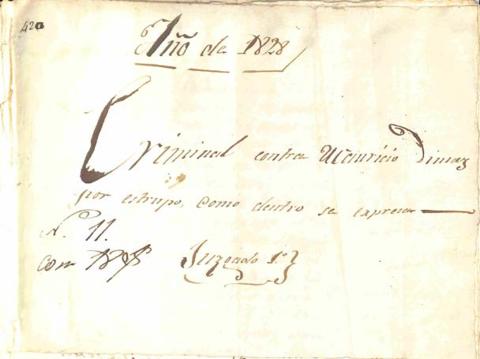 420
Año de 1828
Criminal contra Mauricio Dimas
por estrupo, como dentro se expresa
N. 11.
con Juzgado 1º